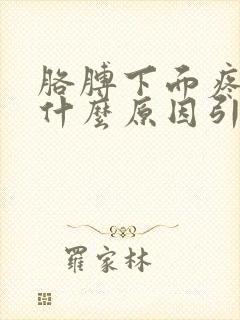 胳膊下而疼
什麼原因引
羅家林